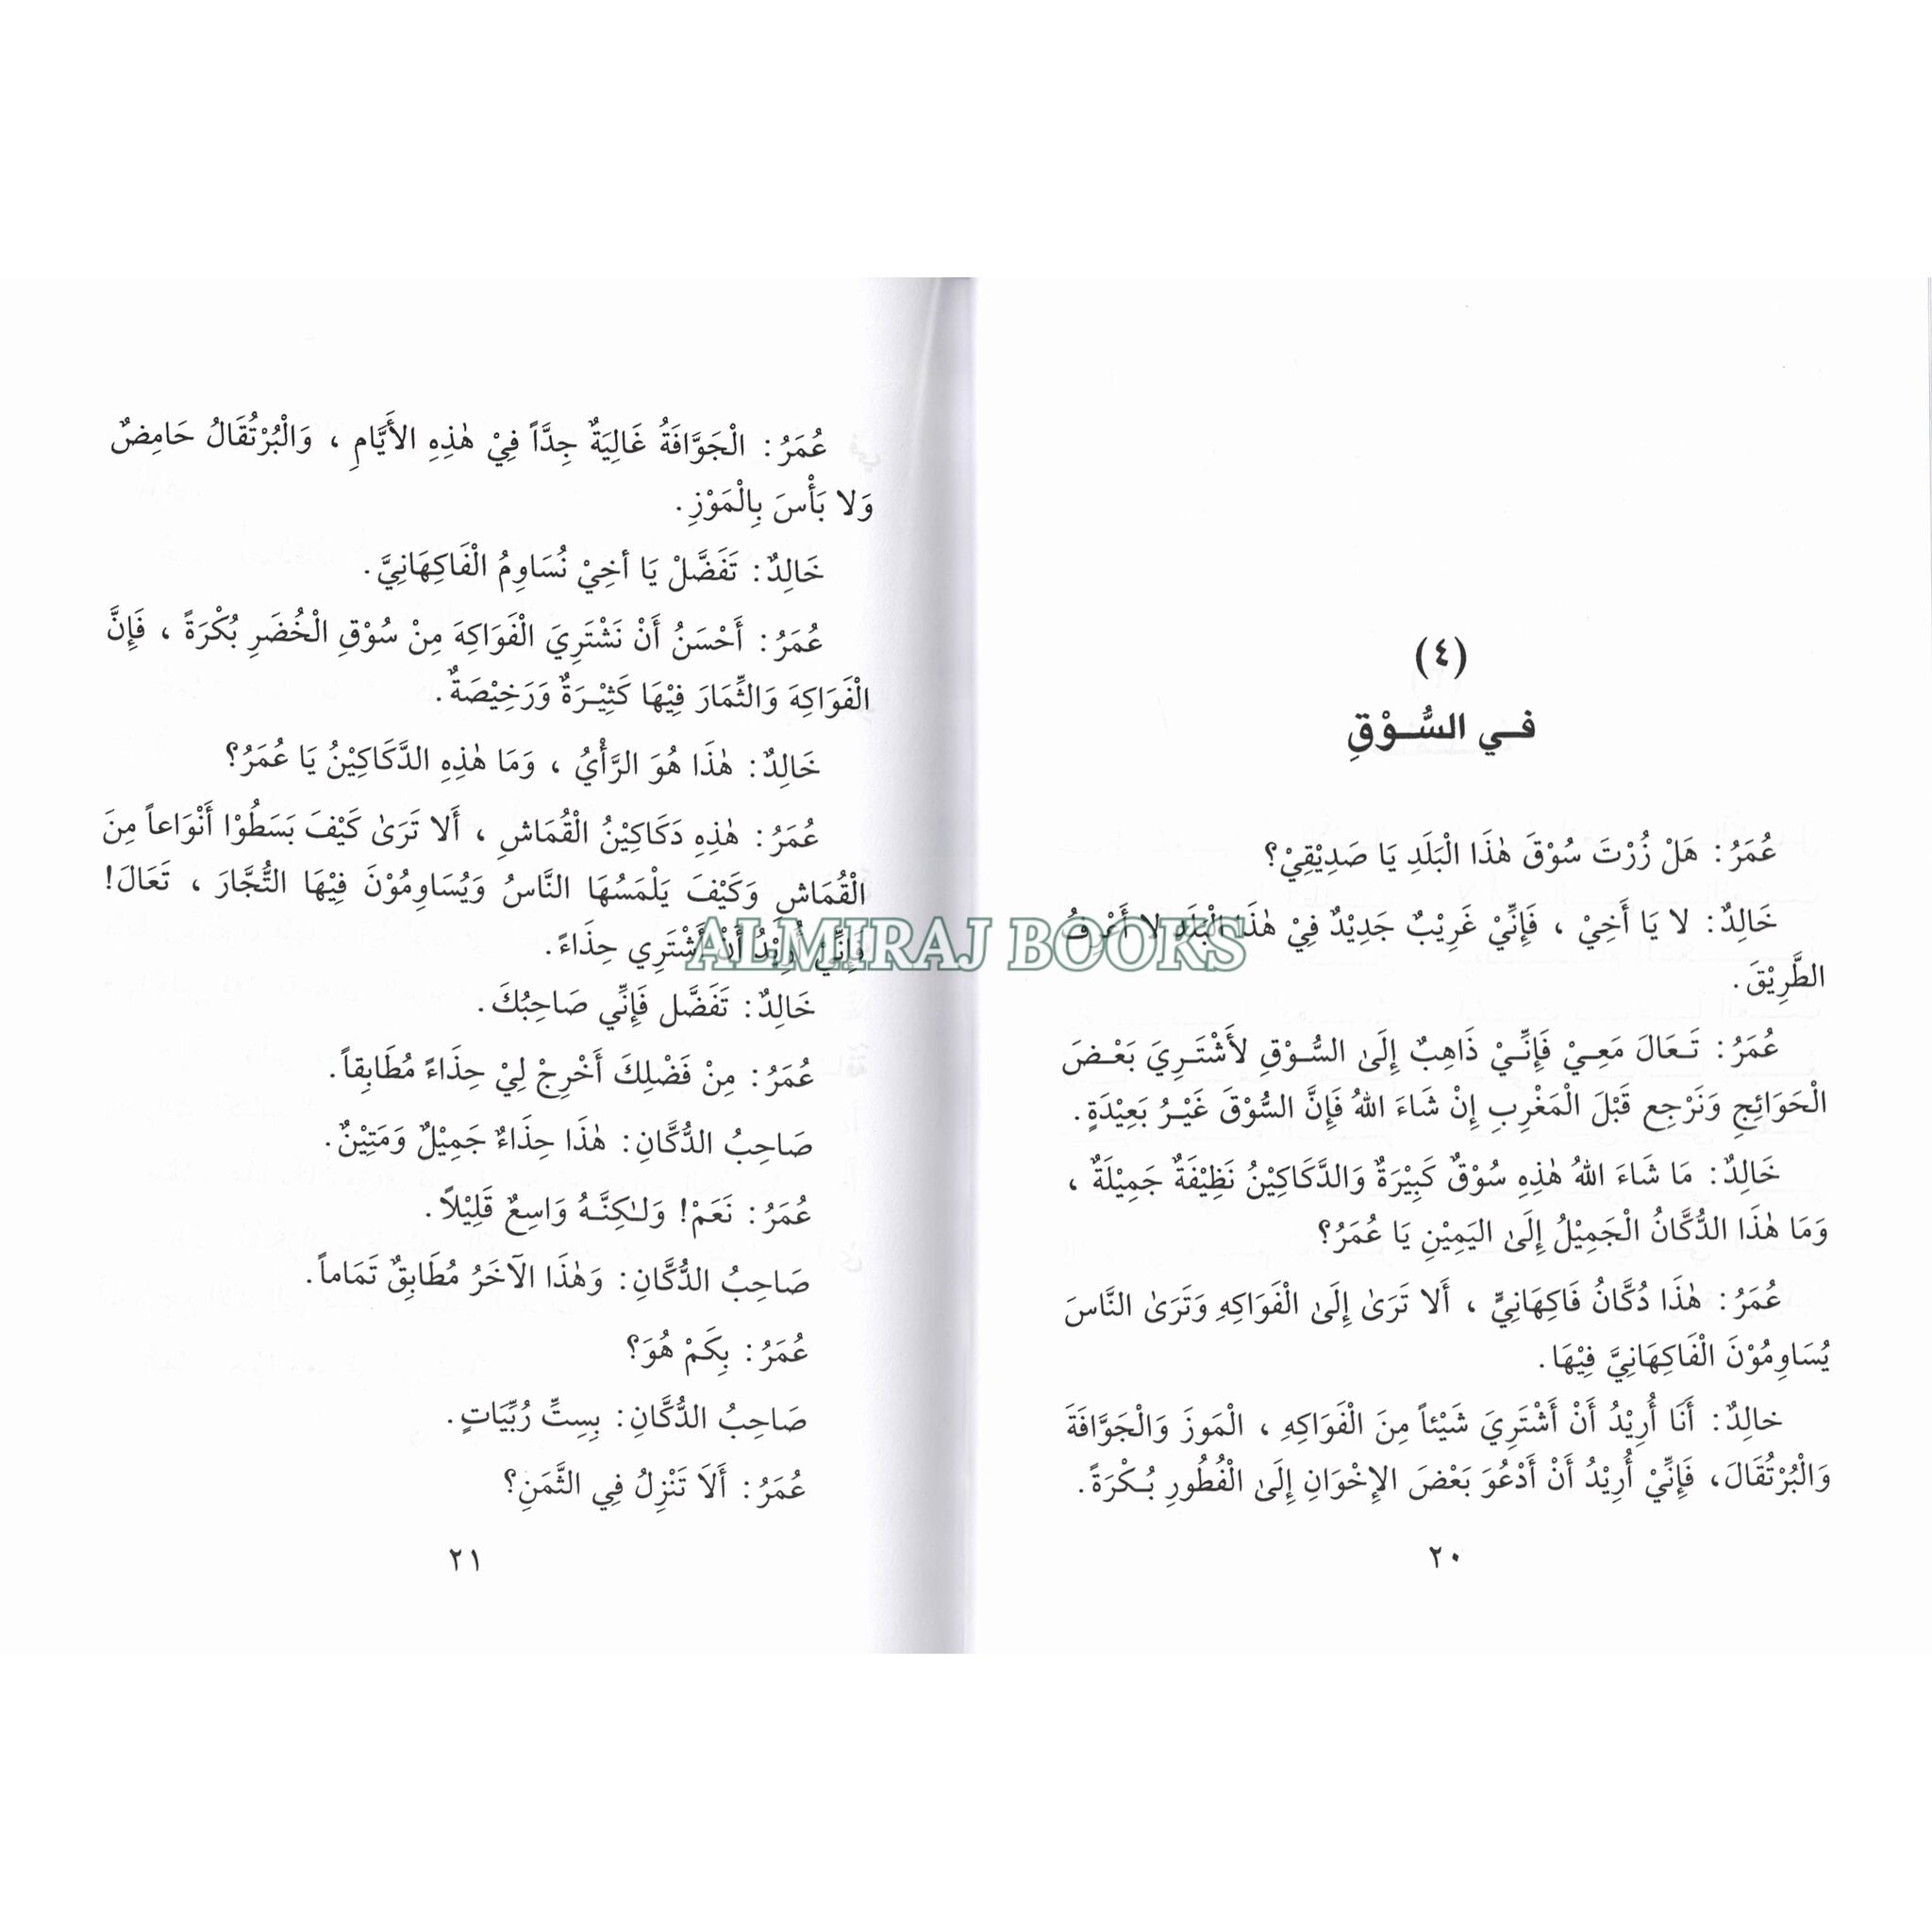 (٤)
فــي السُّــوْقِ
عُمَرُ: هَلْ زُرْتَ سُوْقَ هٰذَا الْبَلَدِ يَا صَدِيْقِيْ؟
خَالِدٌ: لا يَا أَخِيْ ، فَإِنِّيْ غَرِيْبٌ جَدِيْدٌ فِيْ هٰذَا الْبَلَدِ لا أَعْرِفُ
الطَّرِيْقَ.
عُمَرُ: تَـعَالَ مَعِـيْ فَإِنِّـيْ ذَاهِبٌ إِلَىٰ السُّـوْقِ لأَشْتَـرِيَ بَعْـضَ
الْحَوَائِجِ وَنَرْجِع قَبْلَ الْمَغْرِبِ إِنْ شَاءَ اللهُ فَإِنَّ السُّوْقَ غَيْـرُ بَعِيْدَةٍ.
خَالِدٌ: مَا شَاءَ اللهُ هٰذِهِ سُوْقٌ كَبِيْرَةٌ وَالدَّكَاكِيْنُ نَظِيْفَةٌ جَمِيْلَةٌ ،
وَمَا هٰذَا الدُّكَّانُ الْجَمِيْلُ إِلَىٰ اليَمِيْنِ يَا عُمَرُ؟
عُمَرُ: هٰذَا دُكَّانُ فَاكِهَانِيٍّ ، أَلا تَرَىٰ إِلَىٰ الْفَوَاكِهِ وَتَرَىٰ النَّاسَ
يُسَاوِمُوْنَ الْفَاكِهَانِيَّ فِيْهَا.
خالِدٌ: أَنَا أُرِيْدُ أَنْ أَشْتَرِيَ شَيْئاً مِنَ الْفَوَاكِهِ ، الْمَوزَ وَالْجَوَّافَةَ
وَالْبُرْتُقَالَ، فَإِنِّيْ أُرِيْدُ أَنْ أَدْعُوَ بَعْضَ الإِخْوَانِ إِلَىٰ الْفُطُورِ بُـكْرَةً.
٢٠
عُمَرُ: الْجَوَّافَةُ غَالِيَةٌ جِدَّاً فِيْ هٰذِهِ الأَيَّامِ ، وَالْبُرْتُقَالُ حَامِضٌ
وَلا بَأْسَ بِالْمَوْزِ.
خَالِدٌ: تَفَضَّلْ يَا أخِيْ نُسَاوِمُ الْفَاكِهَانِيَّ.
عُمَرُ: أَحْسَنُ أَنْ نَشْتَرِيَ الْفَوَاكِهَ مِنْ سُوْقِ الْخُضَرِ بُكْرَةً ، فَإِنَّ
الْفَوَاكِهَ وَالثِّمَارَ فِيْهَا كَثِيْـرَةٌ وَرَخِيْصَةٌ.
خَالِدٌ: هٰذَا هُوَ الرَّأْيُ ، وَمَا هٰذِهِ الدَّكَاكِيْنُ يَا عُمَرُ؟
عُمَرُ: هٰذِهِ دَكَاكِيْنُ الْقُمَاشِ ، أَلا تَرَىٰ كَيْفَ بَسَطُوْا أَنْوَاعاً مِنَ
الْقُمَاشِ وَكَيْفَ يَلْمَسُهَا النَّاسُ وَيُسَاوِمُوْنَ فِيْهَا التُّجَّارَ ، تَعَالَ!
فَإِنِّيْ أُرِيْدُ أَنْ أَشْتَرِي حِذَاءً.
خَالِدٌ: تَفَضَّل فَإِنِّي صَاحِبُكَ.
عُمَرُ: مِنْ فَضْلِكَ أَخْرِجْ لِيْ حِذَاءً مُطَابِقاً.
صَاحِبُ الدُّكَّانِ: هٰذَا حِذَاءٌ جَمِيْلٌ وَمَتِيْنٌ.
عُمَرُ: نَعَمْ! وَلـٰكِنَّـهُ وَاسِعٌ قَلِيْلاً.
صَاحِبُ الدُّكَّانِ: وَهٰذَا الآخَرُ مُطَابِقٌ تَمَاماً.
عُمَرُ: بِكَمْ هُوَ؟
صَاحِبُ الدُّكَّانِ: بِسِتِّ رُبِّيَاتٍ.
عُمَرُ: أَلاَ تَنْزِلُ فِي الثَّمَنِ؟
٢١
ALMIRAJ BOOKS